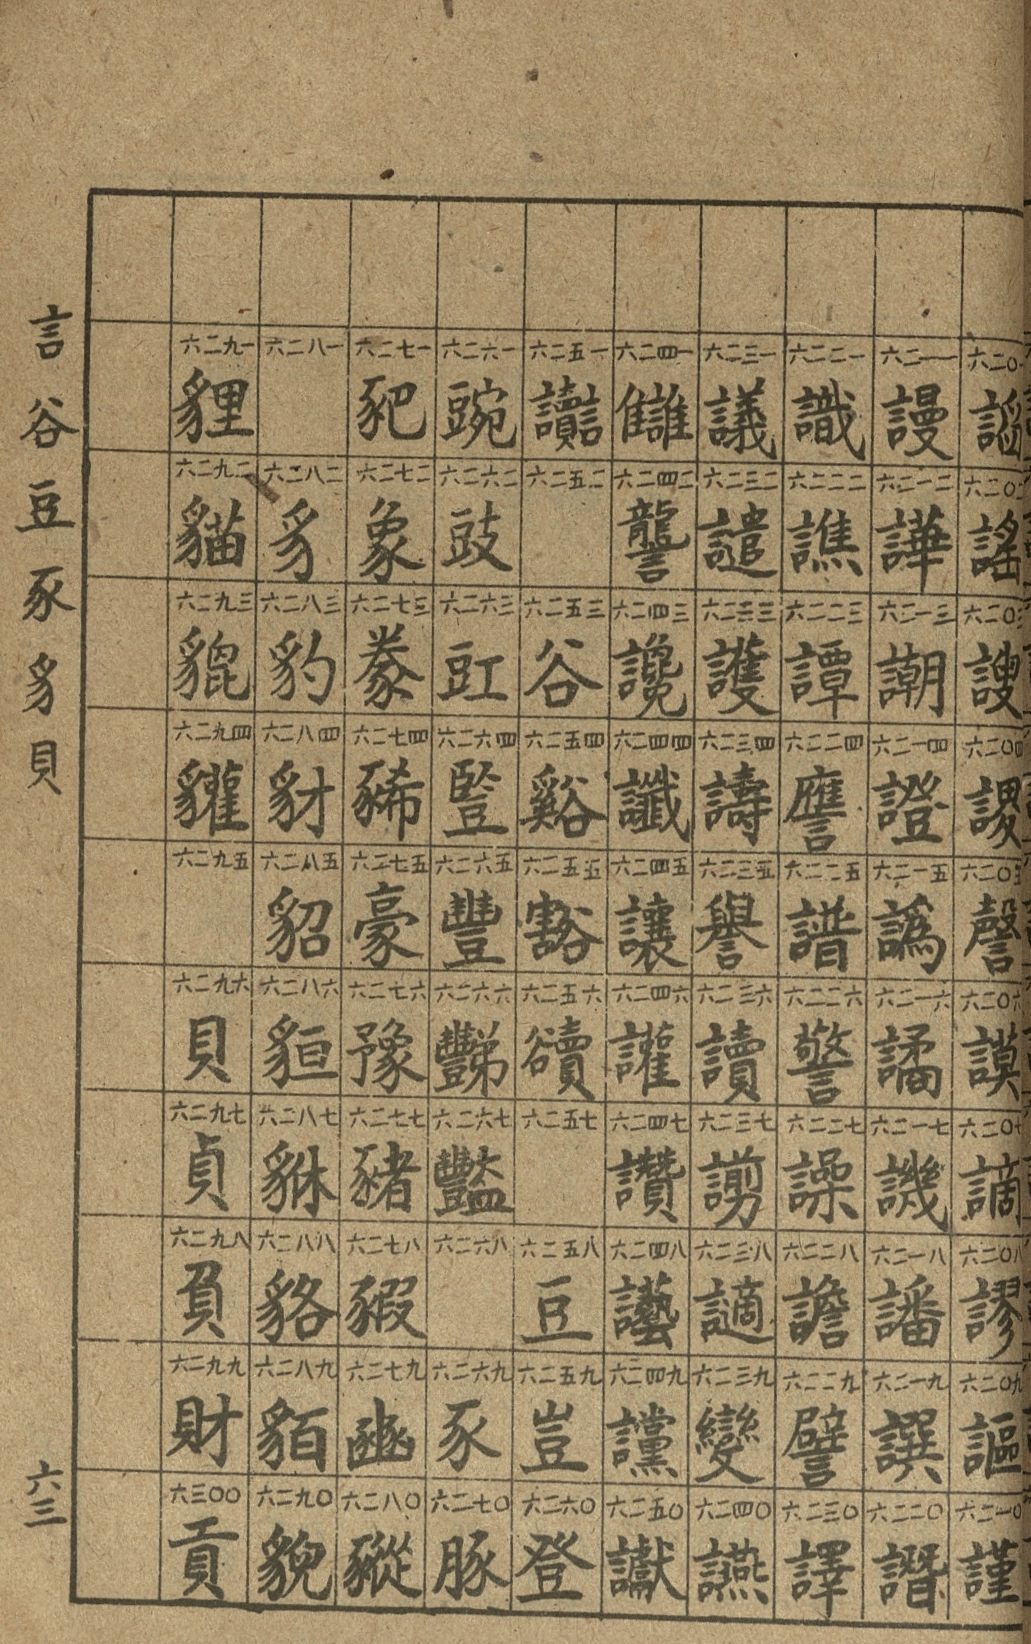 六二〇一 謟
六二〇二 謠
六二〇三 謏
六二〇四 謖
六二〇五 謦
六二〇六 謨
六二〇七 謫
六二〇八 謬
六二〇九 謳
六二一〇 謹
六二一一 謾
六二一二 譁
六二一三 謿
六二一四 證
六二一五 譌
六二一六 譎
六二一七 譏
六二一八 譒
六二一九 譔
六二二〇 譖
六二二一 識
六二二二 譙
六二二三 譚
六二二四 譍
六二二五 譜
六二二六 警
六二二七 譟
六二二八 譫
六二二九 譬
六二三〇 譯
六二三一 議
六二三二 譴
六二三三 護
六二三四 譸
六二三五 譽
六二三六 讀
六二三七 謭
六二三八 讁
六二三九 變
六二四〇 讌
六二四一 讎
六二四二 讋
六二四三 讒
六二四四 讖
六二四五 讓
六二四六 讙
六二四七 讚
六二四八 讛
六二四九 讜
六二五〇 讞
六二五一 讟
六二五二
六二五三 谷
六二五四 谿
六二五五 豁
六二五六 豄
六二五七
六二五八 豆
六二五九 豈
六二六〇 登
六二六一 豌
六二六二 豉
六二六三 豇
六二六四 豎
六二六五 豐
六二六六 豑
六二六七 豔
六二六八
六二六九 豕
六二七〇 豚
六二七一 豝
六二七二 象
六二七三 豢
六二七四 豨
六二七五 豪
六二七六 豫
六二七七 豬
六二七八 豭
六二七九 豳
六二八〇 豵
六二八一
六二八二 豸
六二八三 豹
六二八四 豺
六二八五 貂
六二八六 貆
六二八七 貅
六二八八 貉
六二八九 貃
六二九〇 貌
六二九一 貍
六二九二 貓
六二九三 貔
六二九四 貛
六二九五
六二九六 貝
六二九七 貞
六二九八 負
六二九九 財
六三〇〇 貢
言谷豆豕豸貝
六三